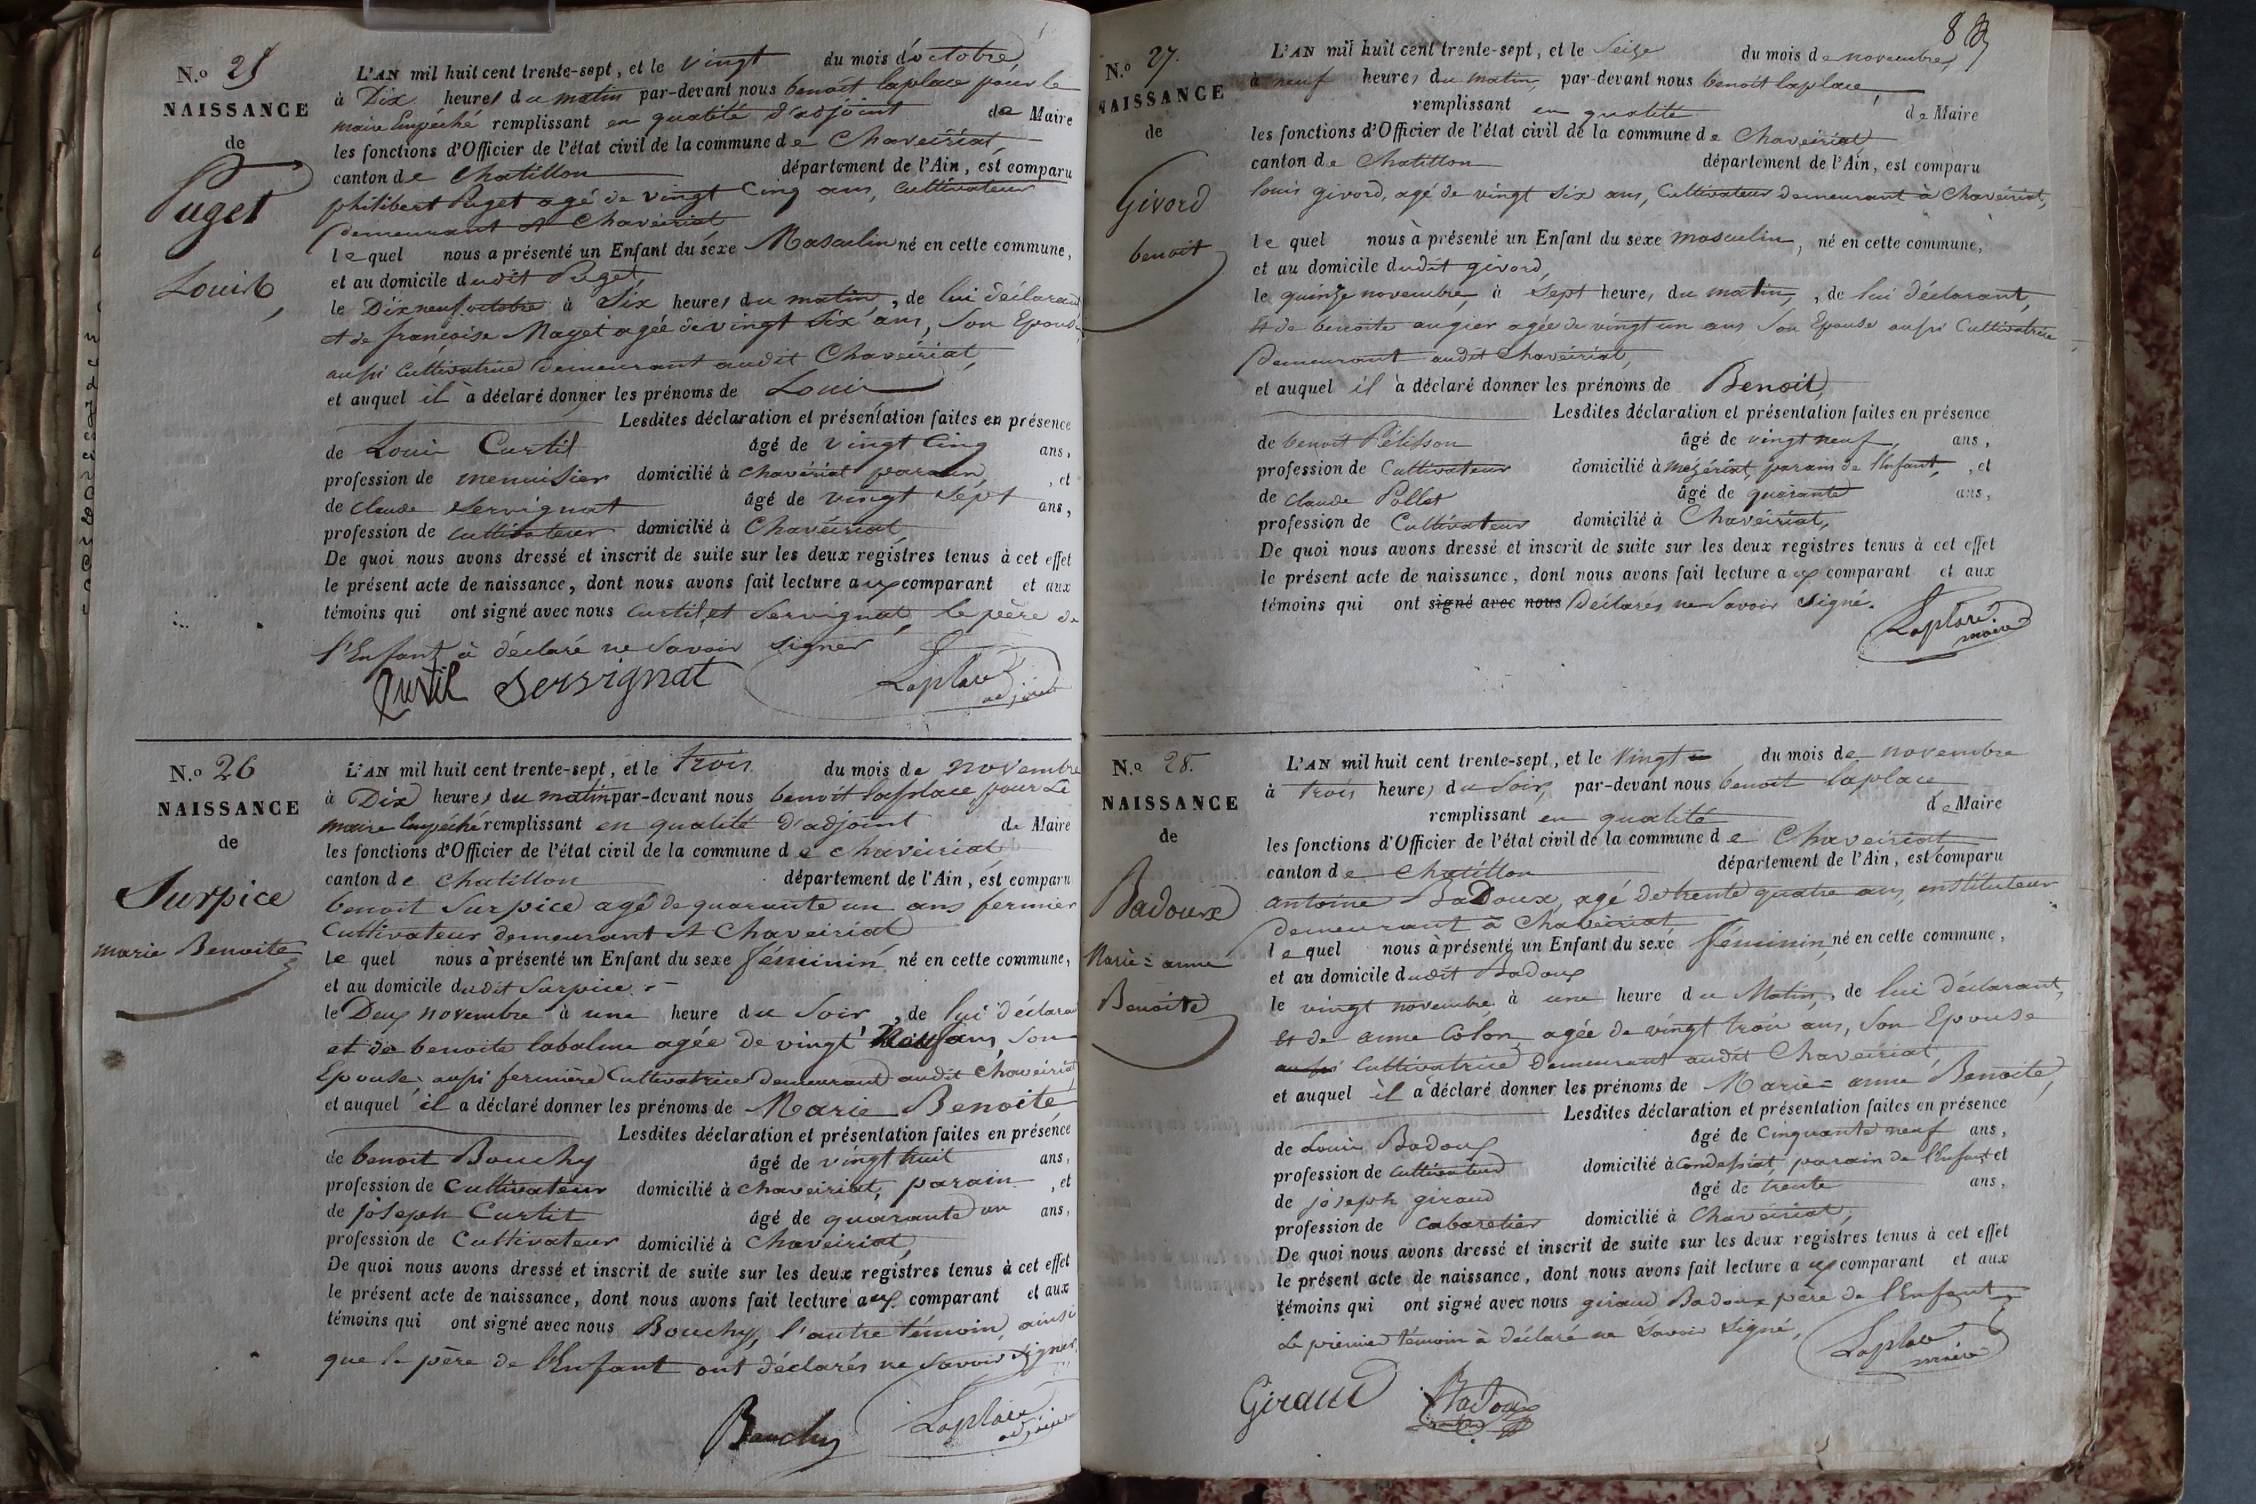 N.o 25
NAISSANCE
de
Puget
Louis
L'AN mil huit cent trente-sept, et le vingt du mois d'octobre
à Dix heures du matin par-devant nous benoit laplace pour le
maire Empéché remplissant en qualité d'adjoint de Maire
les fonctions d'Officier de l'état civil de la commune de Chaveiriat
canton de Chatillon département de l'Ain, est comparu
philibert Puget agé de vingt Cinq ans, cultivateur
demeurant A Chaveiriat
le quel nous a présenté un Enfant du sexe Masculin né en cette commune,
et au domicile dudit Puget
le Dixneuf octobre à Six heures du matin, de lui déclarant
et de françoise Mayet agée de vingt Six ans, Son Epouse
aussi Cultivatrice demeurant audit Chaveiriat,
et auquel il à déclaré donner les prénoms de Louis
Lesdites déclaration et présentation faites en présence
de Louis Curtil âgé de vingt Cinq ans,
profession de menuisier domicilié à chavériat parain, et
de claude Servignat âgé de vingt sept ans,
profession de cultivateur domicilié à Chaveiriat
De quoi nous avons dressé et inscrit de suite sur les deux registres tenus à cet effet
le présent acte de naissance, dont nous avons fait lecture aux comparant et aux
témoins qui ont signé avec nous curtil, et Servignat, le père de
l'Enfant à déclaré ne Savoir signer
Curtil Servignat Laplace adjoint
N.o 26
NAISSANCE
de
Surpice
marie Benoite
L'AN mil huit cent trente-sept, et le trois du mois de novembre
à Dix heures du matin par-devant nous benoit laplace pour Le
maire Empéché remplissant en qualité d'adjoint de Maire
les fonctions d'Officier de l'état civil de la commune de chaveiriat
canton de chatillon département de l'Ain, est comparu
benoit Surpice agé de quarante un ans fermier
Cultivateur demeurant A Chaveiriat
le quel nous à présenté un Enfant du sexe féminin né en cette commune,
et au domicile dudit Surpice
le Deux novembre à une heure du Soir, de lui déclarant
et de benoite labalme agée de vingt Neuf ans, Son
Epouse aussi fermière Cultivatrice demeurant audit Chaveiriat
et auquel il a déclaré donner les prénoms de Marie Benoite
Lesdites déclaration et présentation faites en présence
de benoit Bouchy âgé de vingt huit ans,
profession de Cultivateur domicilié à chaveiriat, parain, et
de joseph Curtil âgé de quarante un ans,
profession de Cultivateur domicilié à Chaveiriat,
De quoi nous avons dressé et inscrit de suite sur les deux registres tenus à cet effet
le présent acte de naissance, dont nous avons fait lecture aux comparant et aux
témoins qui ont signé avec nous Bouchy, l'autre témoin ainsi
que le père de l'Enfant ont déclarés ne Savoir signer
Bouchy Laplace adjoint
N.o 27.
NAISSANCE
de
Givord
benoit
L'AN mil huit cent trente-sept, et le Seize du mois de novembre,
à neuf heures du matin, par-devant nous benoit laplace,
remplissant en qualité de Maire
les fonctions d'Officier de l'état civil de la commune de Chaveiriat
canton de Chatillon département de l'Ain, est comparu
louis givord, agé de vingt Six ans, Cultivateur demeurant à Chaveiriat,
le quel nous à présenté un Enfant du sexe masculin, né en cette commune,
et au domicile dudit givord,
le quinze novembre, à sept heures du matin, de lui déclarant,
Et de benoite augier agée de vingt un ans Son Epouse aussi Cultivatrice
demeurant audit Chaveiriat,
et auquel il à déclaré donner les prénoms de Benoit,
Lesdites déclaration et présentation faites en présence
de benoit Pélisson âgé de vingt neuf, ans,
profession de Cultivateur domicilié à mézériat, parain de l'Enfant, et
de claude Pollet âgé de quarante ans,
profession de Cultivateur domicilié à Chaveiriat,
De quoi nous avons dressé et inscrit de suite sur les deux registres tenus à cet effet
le présent acte de naissance, dont nous avons fait lecture aux comparant et aux
témoins qui ont signé avec nous Déclarés ne Savoir signé.
Laplace maire
N.o 28.
NAISSANCE
de
Badoux
Marie=anne
Benoite
L'AN mil huit cent trente-sept, et le Vingt du mois de novembre
à trois heures du Soir, par-devant nous benoit laplace
remplissant en qualité de Maire
les fonctions d'Officier de l'état civil de la commune de Chaveiriat
canton de Chatillon département de l'Ain, est comparu
antoine BaDoux, agé de trente quatre ans, instituteur
demeurant à Chaveiriat
le quel nous à présenté un Enfant du sexe féminin, né en cette commune,
et au domicile dudit Badoux
le vingt novembre à une heure du Matin, de lui déclarant,
Et de anne Colon agée de vingt trois ans, Son Epouse
aussi Cultivatrice demeurant audit Chaveiriat,
et auquel il a déclaré donner les prénoms de Marie=anne Benoite,
Lesdites déclaration et présentation faites en présence
de Louis Badoux âgé de Cinquante neuf ans,
profession de cultivateur domicilié à Condessiat, parain de l'Enfant et
de joseph giraud âgé de trente ans,
profession de cabaretier domicilié à Chaveiriat,
De quoi nous avons dressé et inscrit de suite sur les deux registres tenus à cet effet
le présent acte de naissance, dont nous avons fait lecture aux comparant et aux
témoins qui ont signé avec nous giraud Badoux père de l'Enfant,
Le premier témoin à déclaré ne Savoir signé,
Laplace maire
Giraud Badoux